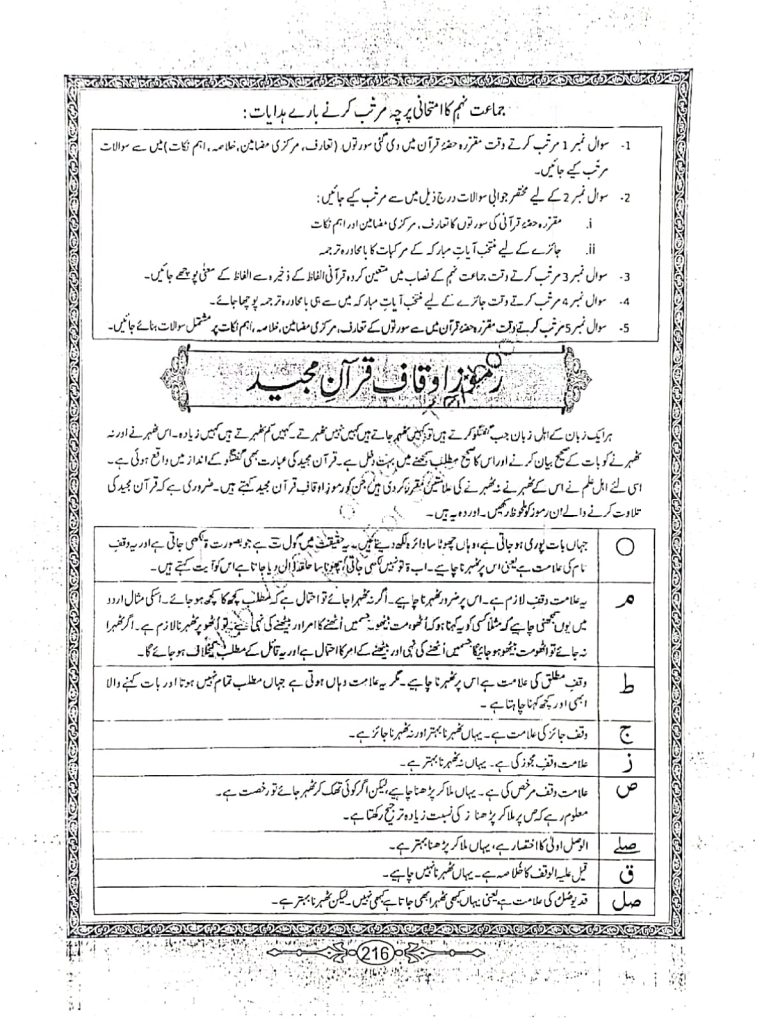 جماعت نہم کا امتحانی پرچہ مرتب کرنے بارے ہدایات:
1- سوال نمبر 1 مرتب کرتے وقت مقررہ حصۂ قرآن میں دی گئی سورتوں (تعارف، مرکزی مضامین، خلاصہ، اہم نکات) میں سے سوالات
مرتب کیے جائیں۔
2- سوال نمبر 2 کے لیے مختصر جوابی سوالات درج ذیل میں سے مرتب کیے جائیں:
i. مقررہ حصۂ قرآنی کی سورتوں کا تعارف، مرکزی مضامین اور اہم نکات
ii. جائزے کے لیے منتخب آیاتِ مبارکہ کے مرکبات کا بامحاورہ ترجمہ
3- سوال نمبر 3 مرتب کرتے وقت جماعت نہم کے نصاب میں متعین کردہ قرآنی الفاظ کے ذخیرہ سے الفاظ کے معنٰی پوچھے جائیں۔
4- سوال نمبر 4 مرتب کرتے وقت جائزے کے لیے منتخب آیاتِ مبارکہ میں سے ہی بامحاورہ ترجمہ پوچھا جائے۔
5- سوال نمبر 5 مرتب کرتے وقت مقررہ حصۂ قرآن میں سے سورتوں کے تعارف، مرکزی مضامین، خلاصہ، اہم نکات پر مشتمل سوالات بنائے جائیں۔
رموزِ اوقاف قرآنِ مجید
ہر ایک زبان کے اہل زبان جب گفتگو کرتے ہیں تو کہیں ٹھہر جاتے ہیں کہیں نہیں ٹھہرتے۔ کہیں کم ٹھہرتے ہیں کہیں زیادہ۔ اس ٹھہرنے اور نہ
ٹھہرنے کو بات کے صحیح بیان کرنے اور اس کا صحیح مطلب سمجھنے میں بہت دخل ہے۔ قرآن مجید کی عبارت بھی گفتگو کے انداز میں واقع ہوئی ہے۔
اسی لئے اہل علم نے اس کے ٹھہرنے نہ ٹھہرنے کی علامتیں مقرر کر دی ہیں جن کو رموز اوقاف قرآن مجید کہتے ہیں۔ ضروری ہے کہ قرآن مجید کی
تلاوت کرنے والے ان رموز کو ملحوظ رکھیں۔ اور وہ یہ ہیں۔
○ جہاں بات پوری ہو جاتی ہے، وہاں چھوٹا سا دائرہ لکھ دیتے ہیں۔ یہ حقیقت میں گول ت ہے جو بصورت ۃ لکھی جاتی ہے اور یہ وقفِ
تام کی علامت ہے یعنی اس پر ٹھہرنا چاہیے۔ اب ۃ تو نہیں لکھی جاتی چھوٹا سا حلقہ ڈال دیا جاتا ہے اس کو آیت کہتے ہیں۔
م یہ علامت وقفِ لازم ہے۔ اس پر ضرور ٹھہرنا چاہیے۔ اگر نہ ٹھہرا جائے تو احتمال ہے کہ مطلب کچھ کا کچھ ہو جائے۔ اسکی مثال اردو
میں یوں سمجھنی چاہیے کہ مثلاً کسی کو یہ کہنا ہو کہ اٹھو، مت بیٹھو۔ جسمیں اُٹھنے کا امر اور بیٹھنے کی نہی ہے۔ تو اُٹھو پر ٹھہرنا لازم ہے۔ اگر ٹھہرا
نہ جائے تو اٹھو مت بیٹھو ہو جائیگا جسمیں اُٹھنے کی نہی اور بیٹھنے کے امر کا احتمال ہے اور یہ قائل کے مطلب کیخلاف ہو جائے گا۔
ط وقفِ مطلق کی علامت ہے اس پر ٹھہرنا چاہیے۔ مگر یہ علامت وہاں ہوتی ہے جہاں مطلب تمام نہیں ہوتا اور بات کہنے والا
ابھی اور کچھ کہنا چاہتا ہے۔
ج وقف جائز کی علامت ہے۔ یہاں ٹھہرنا بہتر اور نہ ٹھہرنا جائز ہے۔
ز علامت وقفِ مجوز کی ہے۔ یہاں نہ ٹھہرنا بہتر ہے۔
ص علامت وقف مرخص کی ہے۔ یہاں ملا کر پڑھنا چاہیے، لیکن اگر کوئی تھک کر ٹھہر جائے تو رخصت ہے۔
معلوم رہے کہ ص پر ملا کر پڑھنا ز کی نسبت زیادہ ترجیح رکھتا ہے۔
صلے الوصل اولیٰ کا اختصار ہے، یہاں ملا کر پڑھنا بہتر ہے۔
ق قیل علیہ الوقف کا خلاصہ ہے۔ یہاں ٹھہرنا نہیں چاہیے۔
صل قد یوصل کی علامت ہے یعنی یہاں کبھی ٹھہرا بھی جاتا ہے کبھی نہیں۔ لیکن ٹھہرنا بہتر ہے۔
216